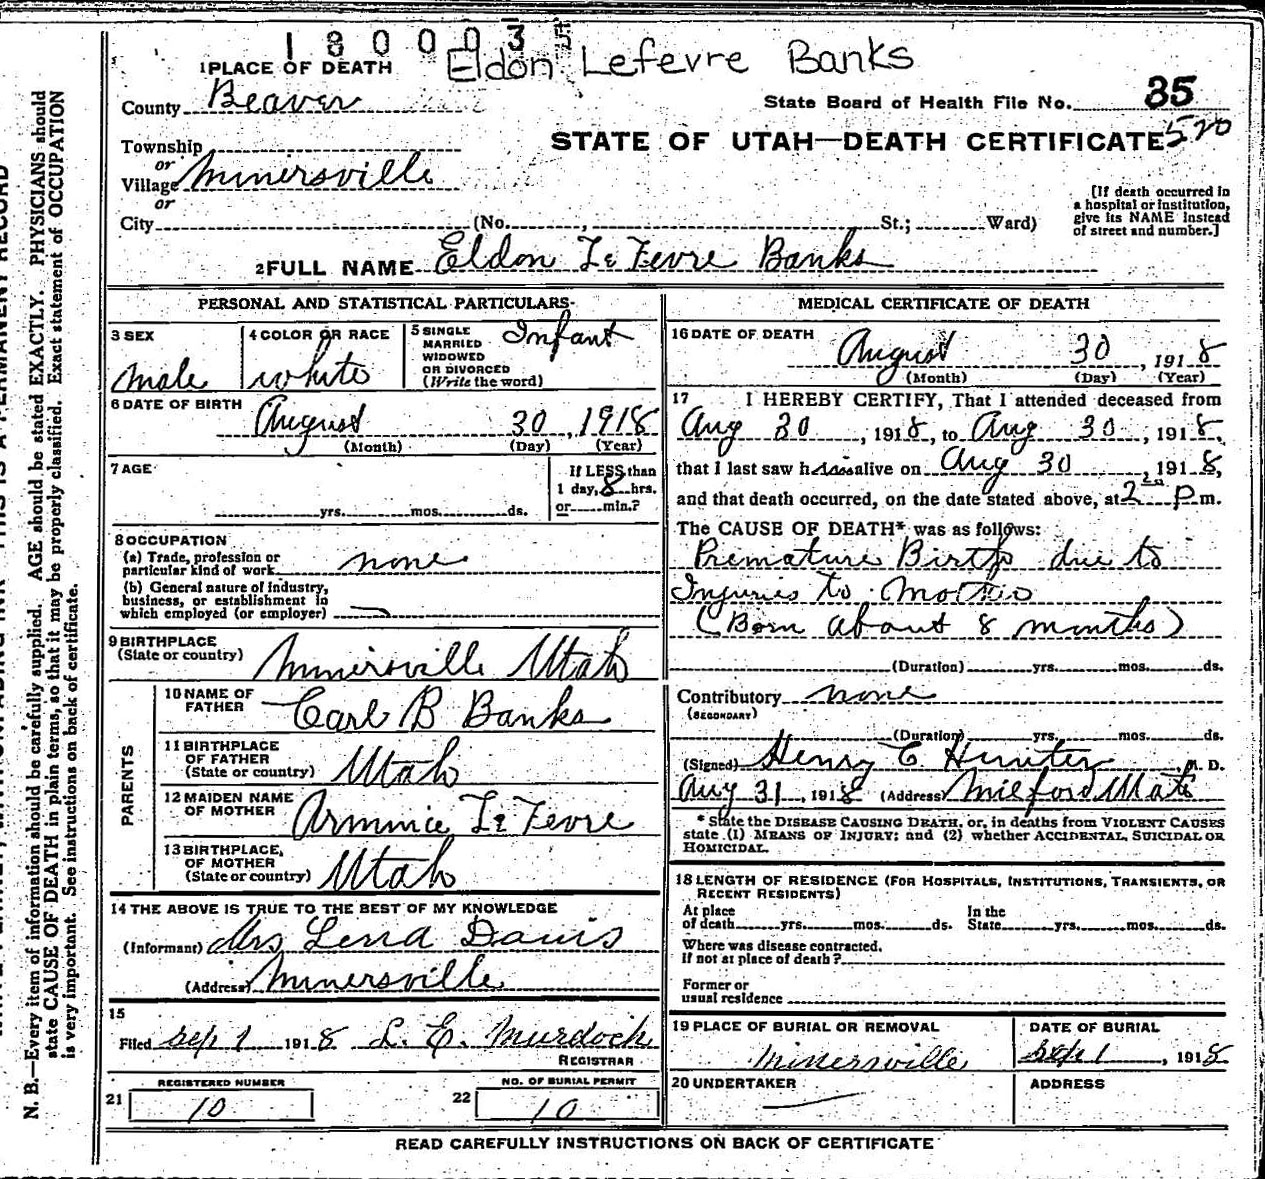 1 8 0 0 0 3 5
Eldon Lefevre Banks
1 PLACE OF DEATH
County Beaver
State Board of Health File No. 35
STATE OF UTAH—DEATH CERTIFICATE 520
Township
or
Village Minersville
or
City (No. , St.; Ward)
[If death occurred in
a hospital or institution,
give its NAME instead
of street and number.]
2 FULL NAME Eldon Le Fevre Banks
PERSONAL AND STATISTICAL PARTICULARS
3 SEX
male
4 COLOR OR RACE
white
5 SINGLE
MARRIED
WIDOWED
OR DIVORCED
(Write the word)
Infant
6 DATE OF BIRTH
August 30, 1918
(Month) (Day) (Year)
7 AGE
yrs. mos. ds.
If LESS than
1 day, 8 hrs.
or min.?
8 OCCUPATION
(a) Trade, profession or
particular kind of work none
(b) General nature of industry,
business, or establishment in
which employed (or employer)
9 BIRTHPLACE
(State or country) Minersville Utah
PARENTS
10 NAME OF
FATHER Carl B Banks
11 BIRTHPLACE
OF FATHER
(State or country) Utah
12 MAIDEN NAME
OF MOTHER Arminnie Le Fevre
13 BIRTHPLACE,
OF MOTHER
(State or country) Utah
14 THE ABOVE IS TRUE TO THE BEST OF MY KNOWLEDGE
(Informant) Mrs Lena Davis
(Address) Minersville
15
Filed Sep 1 1918 L. E. Murdock
REGISTRAR
21 REGISTERED NUMBER
10
22 NO. OF BURIAL PERMIT
10
MEDICAL CERTIFICATE OF DEATH
16 DATE OF DEATH
August 30, 1918
(Month) (Day) (Year)
17 I HEREBY CERTIFY, That I attended deceased from
Aug 30, 1918, to Aug 30, 1918,
that I last saw h alive on Aug 30, 1918,
and that death occurred, on the date stated above, at 2 p m.
The CAUSE OF DEATH* was as follows:
Premature Birth due to
Injuries to Mother
(Born about 8 months)
(Duration) yrs. mos. ds.
Contributory none
(SECONDARY)
(Duration) yrs. mos. ds.
(Signed) Henry C Hunter M. D.
Aug 31, 1918 (Address) Milford Utah
* State the DISEASE CAUSING DEATH, or, in deaths from VIOLENT CAUSES
state (1) MEANS OF INJURY; and (2) whether ACCIDENTAL, SUICIDAL OR
HOMICIDAL.
18 LENGTH OF RESIDENCE (FOR HOSPITALS, INSTITUTIONS, TRANSIENTS, OR
RECENT RESIDENTS)
At place
of death yrs. mos. ds.
In the
State yrs. mos. ds.
Where was disease contracted,
if not at place of death?
Former or
usual residence
19 PLACE OF BURIAL OR REMOVAL
Minersville
DATE OF BURIAL
Sept 1, 1918
20 UNDERTAKER
ADDRESS
READ CAREFULLY INSTRUCTIONS ON BACK OF CERTIFICATE
N. B.—Every item of information should be carefully supplied. AGE should be stated EXACTLY. PHYSICIANS should
state CAUSE OF DEATH in plain terms, so that it may be properly classified. Exact statement of OCCUPATION
is very important. See instructions on back of certificate.